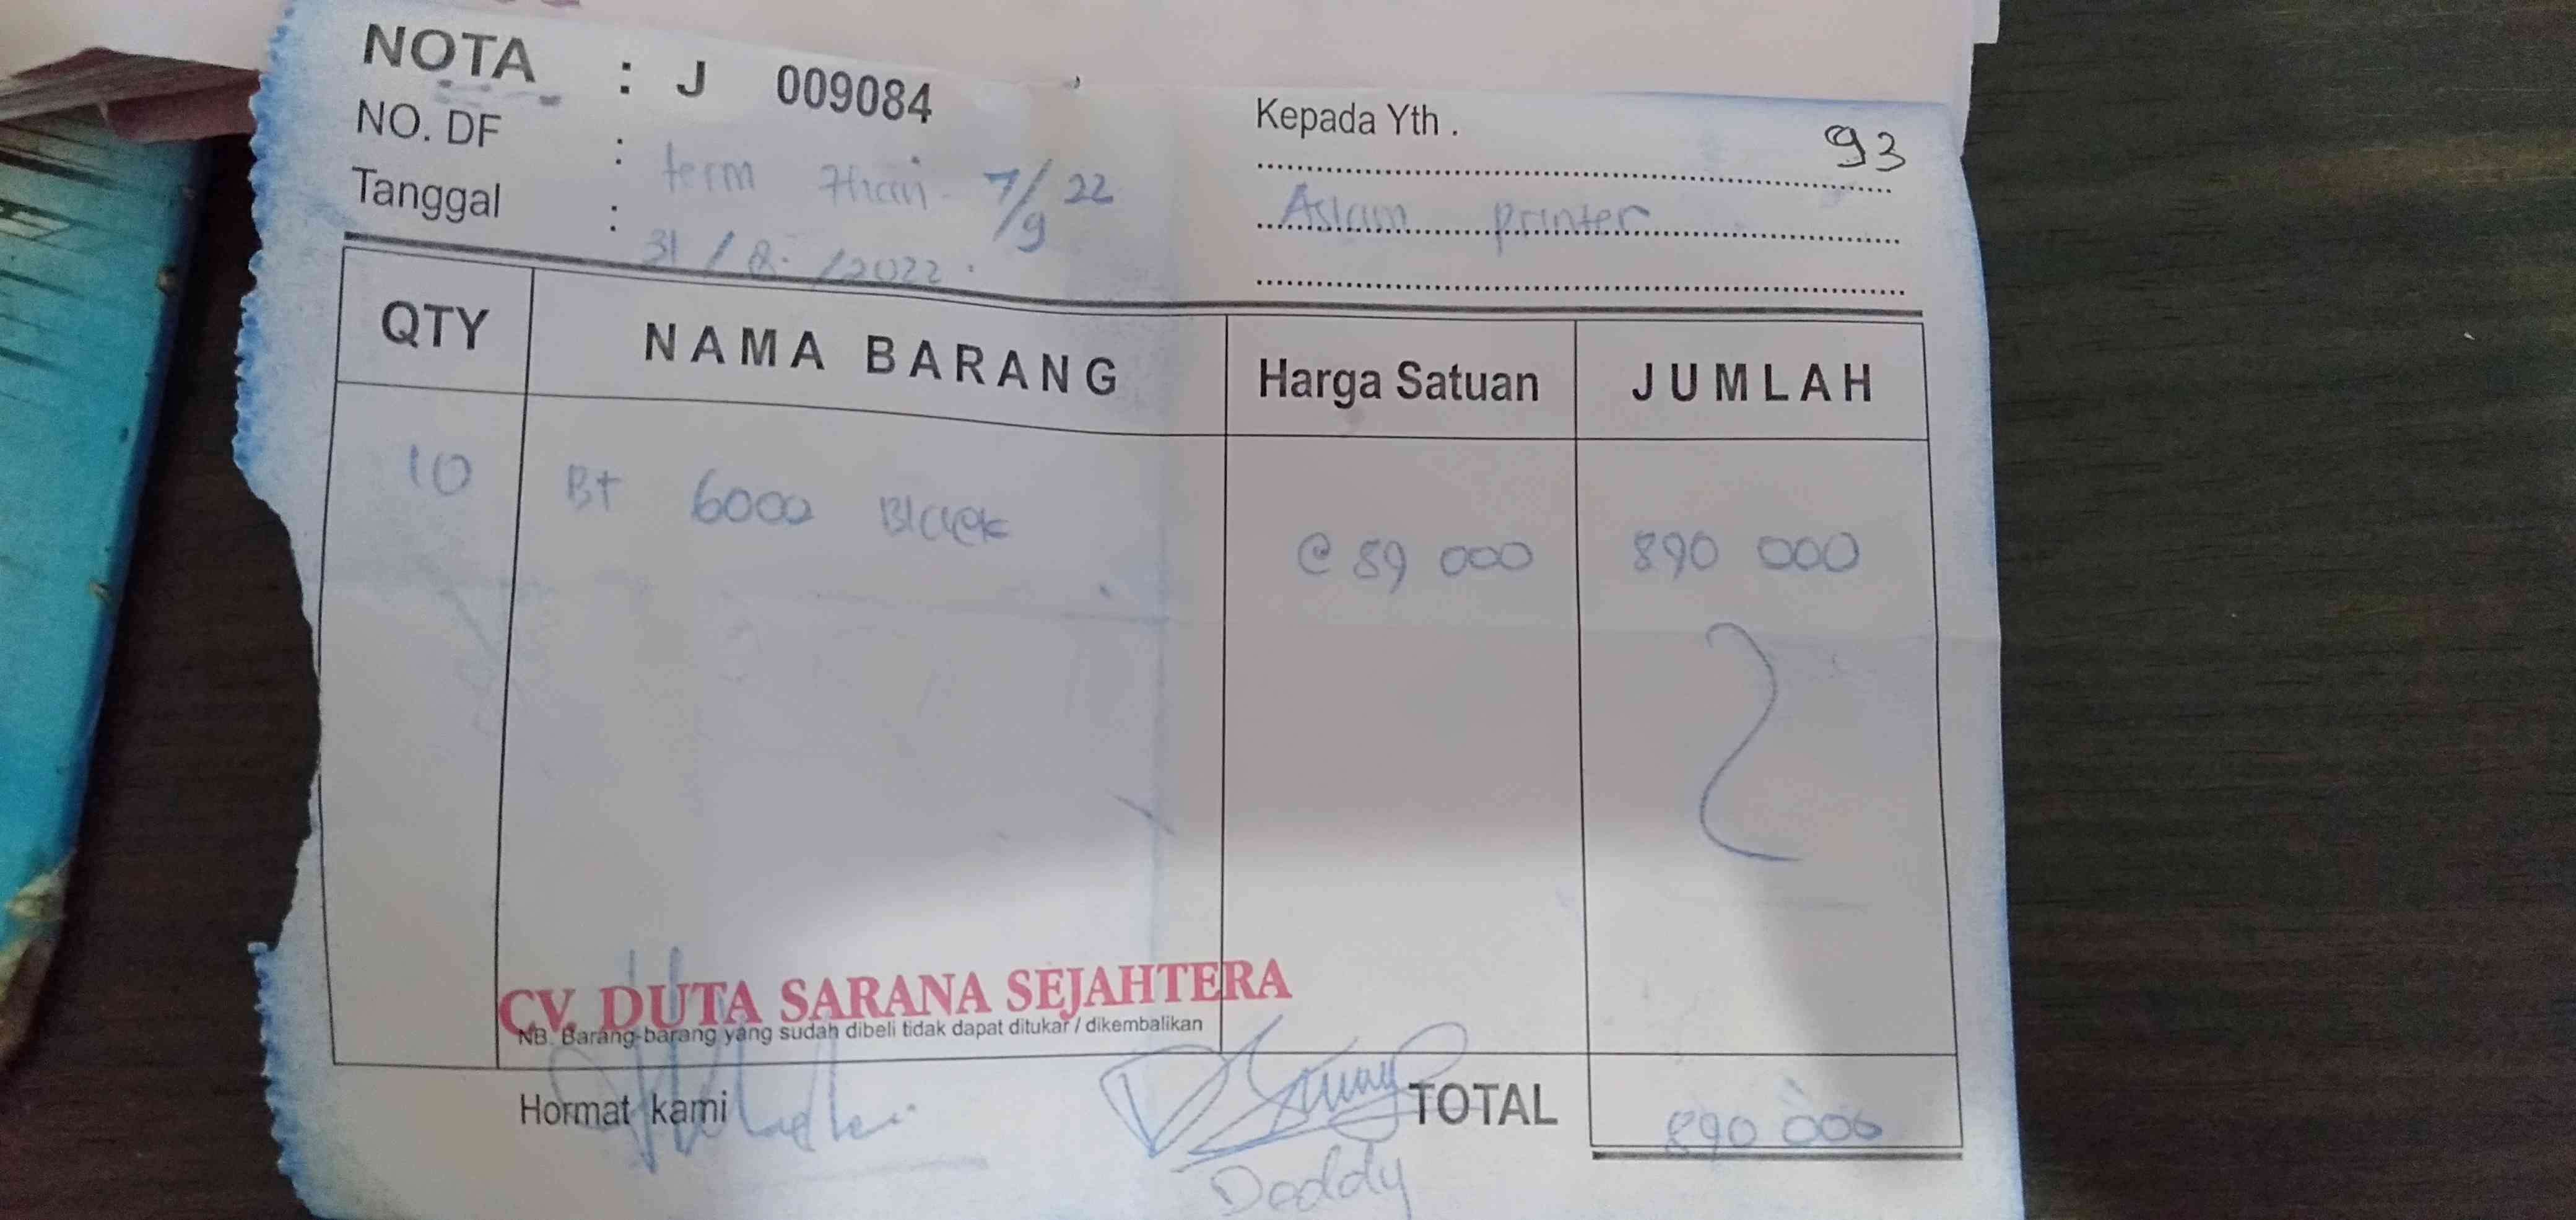 NOTA : J 009084
NO. DF : term 7 hari - 7/9 22
Tanggal : 31 / 8 / 2022
Kepada Yth .
93
Aslam printer
QTY NAMA BARANG Harga Satuan JUMLAH
10 Bt 6000 Black @ 89 000 890 000
CV. DUTA SARANA SEJAHTERA
NB. Barang-barang yang sudah dibeli tidak dapat ditukar / dikembalikan
Hormat kami
TOTAL 890 000
Doddy